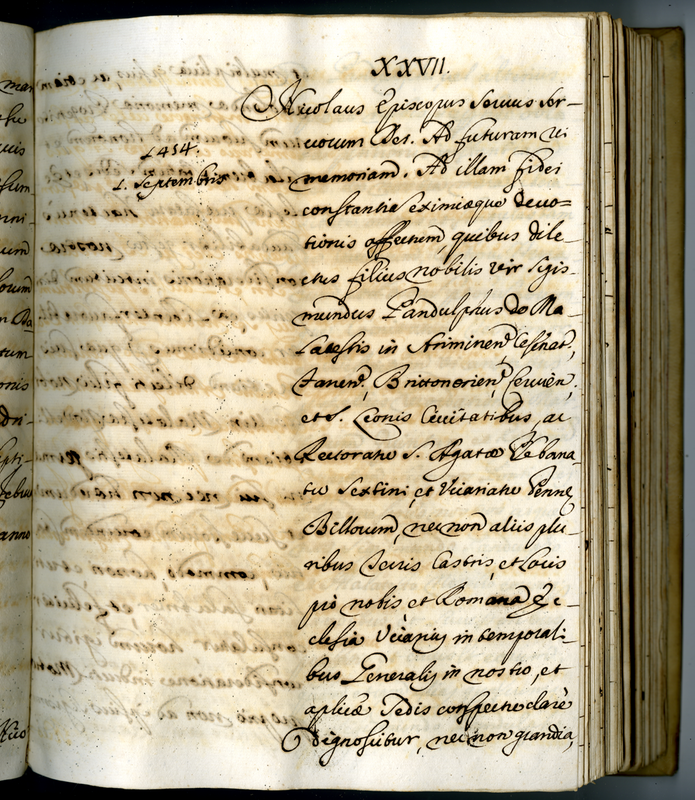 XXVII.
Nicolaus Episcopus Servus ser-
vorum Dei. Ad futuram rei
1454.
1. Septembris
memoriam. Ad illam fidei
constantiæ eximiæque devo=
tionis affectum, quibus dile-
ctus filius nobilis vir Sigis-
mundus Pandulphus de Ma-
latestis in Ariminen, Cesinat,
Fanen, Brittonorien, Servien,
et S. Leonis Civitatibus, ac
Rectoratu S. Agatæ
tu Sextini, et Vicariatu Penne
Billorum, nec non aliis plu-
ribus Terris Castris, et Locis
pro nobis et Romana Ec-
clesia Vicarius in temporali-
bus Generalis in nostro, et
aplicæ Sedis conspectu clarè
dignoscitur, nec non grandia,